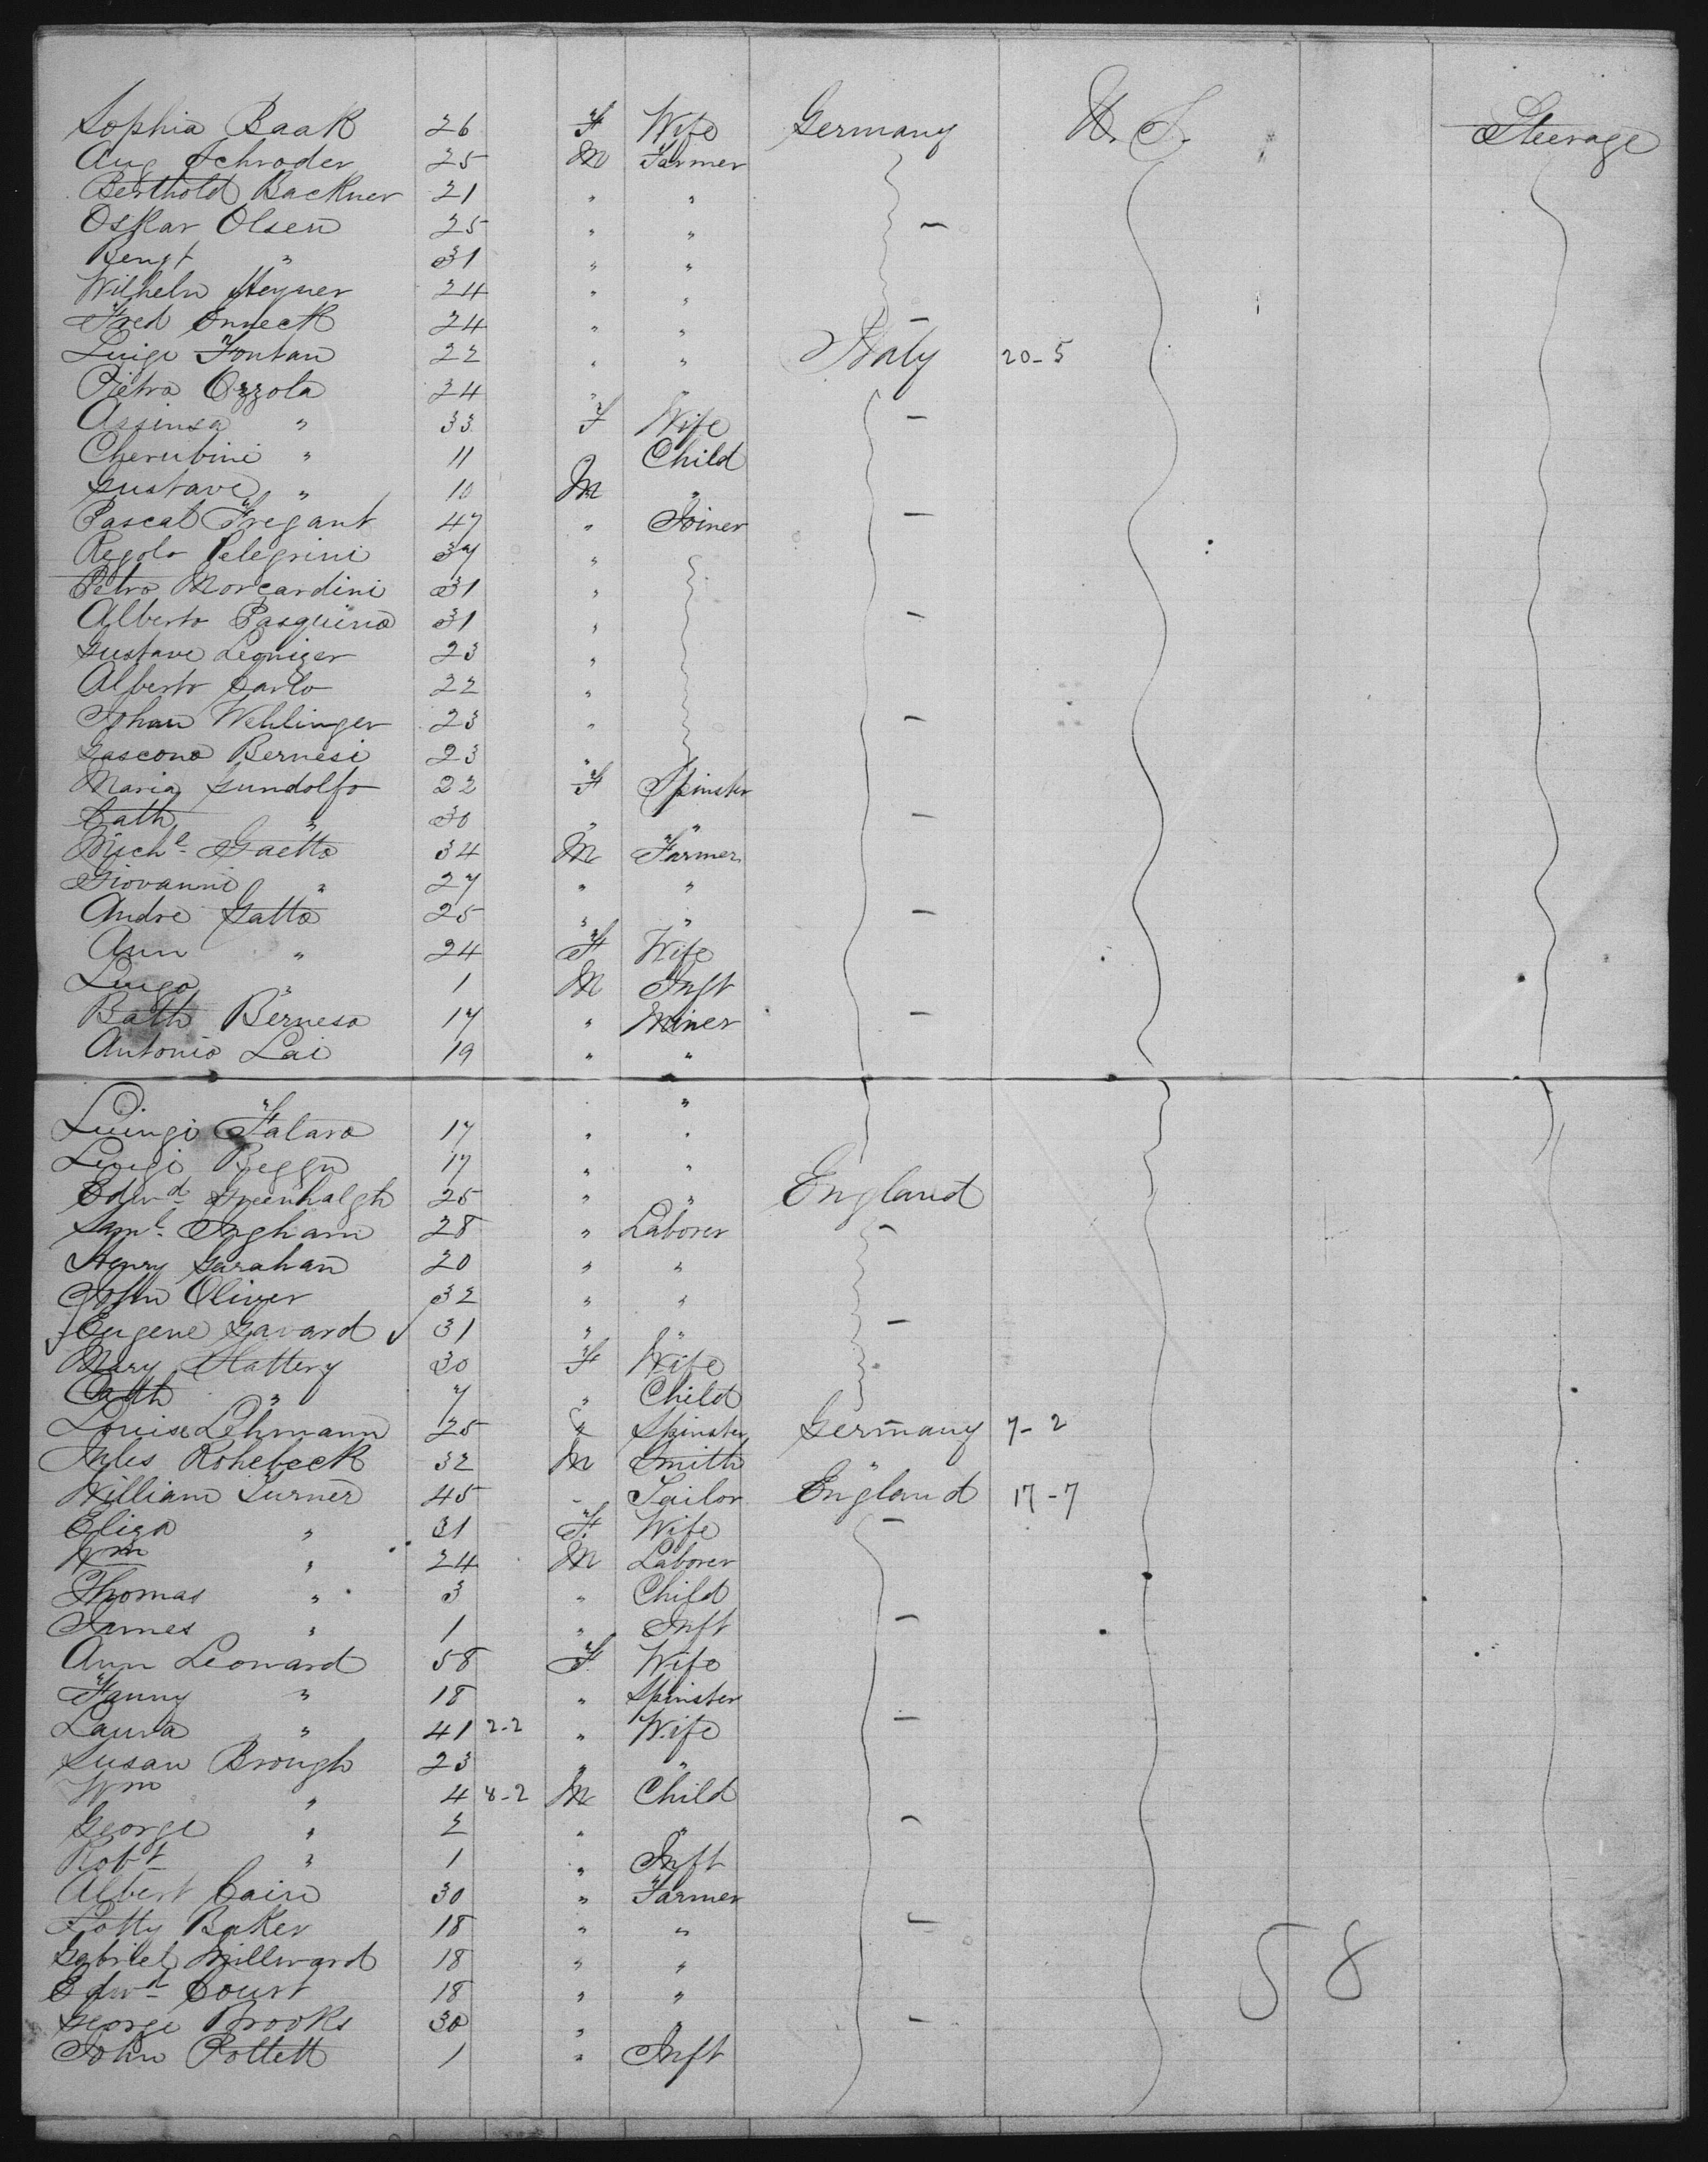 Sophia Baak 26 F Wife Germany U. S. Steerage
Aug Schroder 25 M Farmer
Berthold Backner 21 " "
Oskar Olsen 25 " " —
Bengt " 31 " "
Wilhelm Heyner 24 " "
Fred Enneck 24 " " —
Luigi Fontan 22 " " Italy 20-5
Pietra Ozzola 24 " "
Assinsa " 33 F Wife —
Cherubini " 11 Child
Gustave " 10 M "
Pascal Fregant 47 " Joiner —
Regolo Pelegrini 37 "
Petro Morcardini 31 "
Alberto Pasquino 31 " —
Gustave Leoniger 23 "
Alberto Carlo 22 "
Johan Wehlinger 23 " —
Gascono Bernesi 23 "
Maria Gundolfo 22 F Spinster
Cath " 30 " " —
Michl Gaetto 34 M Farmer
Giovanni " 27 " "
Andre Gatto 25 " " —
Ann " 24 F Wife
Luigo " 1 M Inft
Bath Berneso 17 " Miner —
Antonio Lai 19 " "
"
Luingi Falaro 17 " "
Luigi 17 " "
Edwd Greenhalgh 25 " " England
Saml Ingham 28 " Laborer —
Henry Garahan 20 " "
John Oliver 32 " "
Eugene Gavard 31 " " —
Mary Slattery 30 F Wife
Cath " 7 " Child
Louise Lehmann 25 " Spinster Germany 7-2
Jules Rohebeck 32 M Smith "
William Turner 45 " Tailor England 17-7
Eliza " 31 F. Wife —
Wm " 24 M Laborer
Thomas " 3 " Child
James " 1 " Inft —
Ann Leonard 58 F Wife
Fanny " 18 " Spinster
Laura " 41 2-2 " Wife —
Susan Brough 23 " "
Wm " 4 8-2 M Child
George " 2 " " —
Robt " 1 " Inft
Albert Cairo 30 " Farmer
Lotty Baker 18 " " —
Gabriel Millward 18 " "
Edwd Court 18 " " 58
George Brooks 30 " " —
John Pottett 1 " Inft